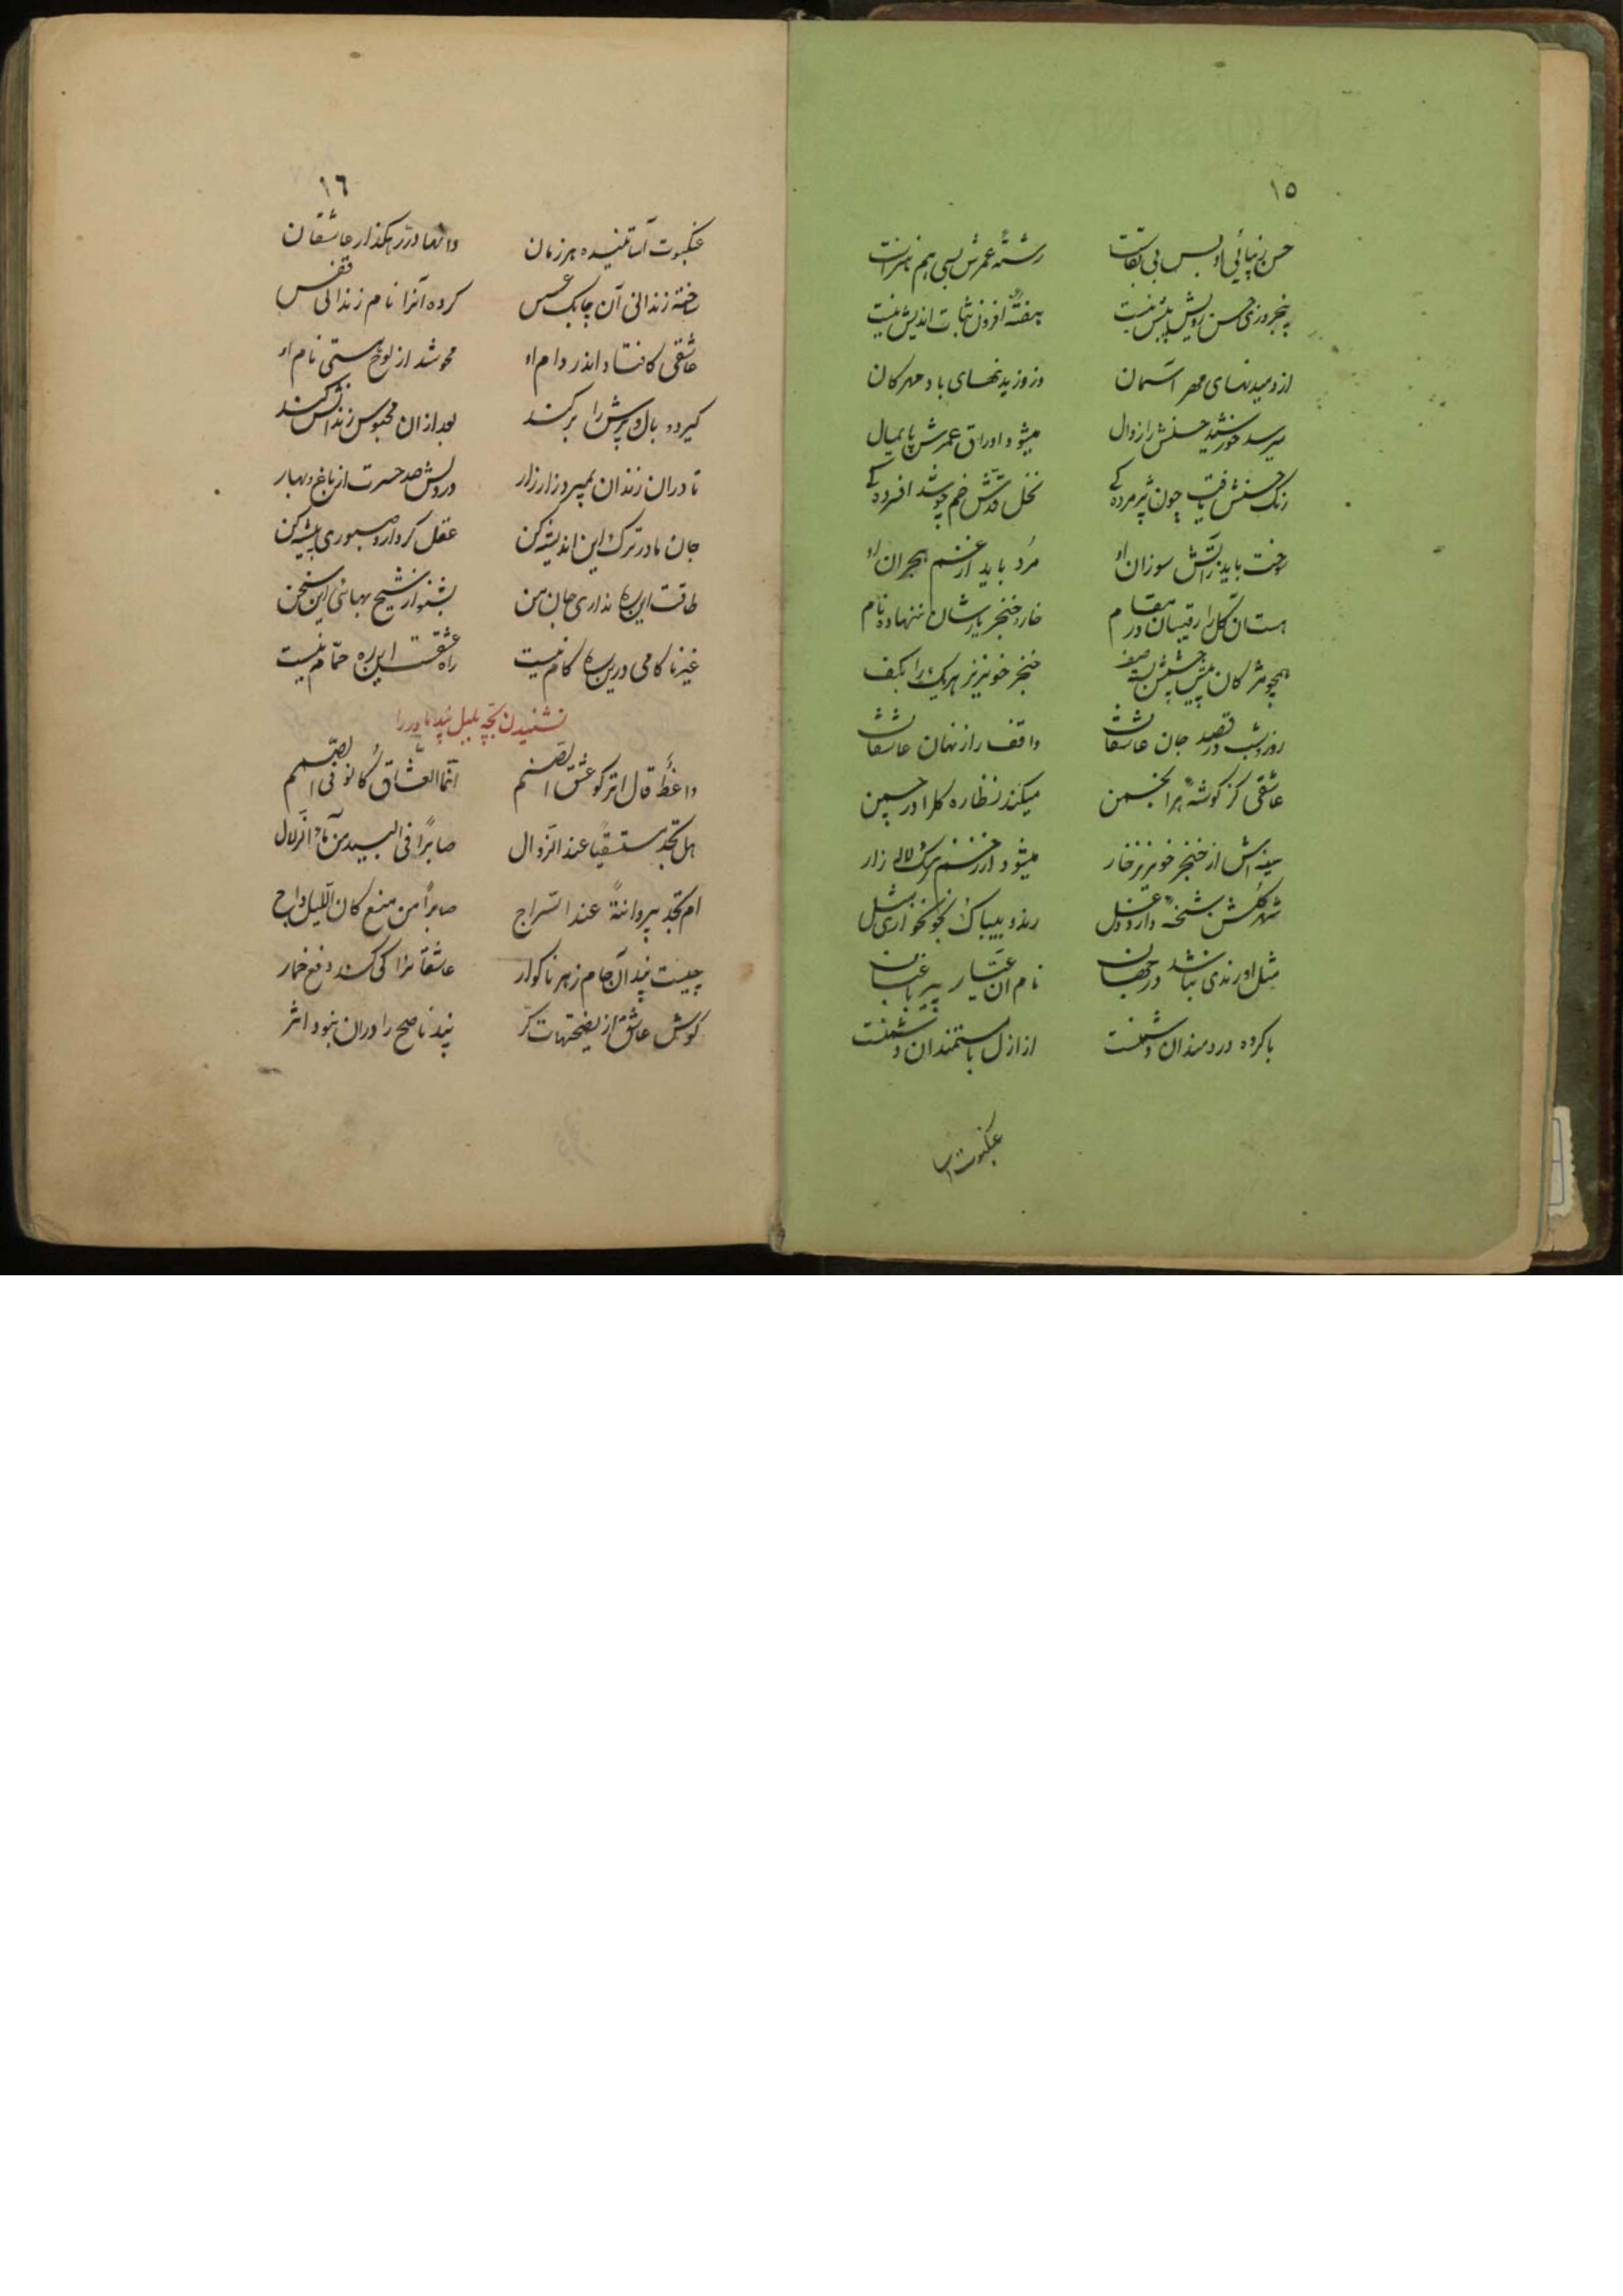 ١٥
حسن زیبائی او بس بی بقاست رشتهٔ عمرش بسی هم نارساست
پنجروزی حسن رویش بیش نیست هفتهٔ افزون ثبات اندیش نیست
از دمیدنهای مهر آسمان وز وزیدنهای باد مهرکان
میرسد خورشید حسنش را زوال میشود اوراق عمرش پایمال
رنک حسنش یافت چون پژمردکے نخل قدش خم چو شد افسردکے
سوخت باید ز آتش سوزان او مرد باید از غم هجران او
هست آن کل را رقیبان در مقام خار و خنجر یار شان بنهاده نام
همچو مژکان پیش چشمش بسته صف خنجر خونریز هر یک را بکف
روز و شب در قصد جان عاشقانش واقف راز نهان عاشقانش
عاشقی کز کوشهٔ هر انجمن میکند نظاره کلرا در چمن
سینه اش از خنجر خونریز خار میشود از زخم رشک لاله زار
شهر کلش شحنهٔ دارد دغل رند و بیباک بخونخواری مثل
مثل او رندی نباشد در جهان نام آن عیار پیر باغبان
با کروه دردمندان دشمنست از ازل با مستمندان دشمنست
عنکبوت آسا
١٦
عنکبوت آسا تنیده هر زمان دامها در رهکذار عاشقان
ساخته زندانی آن چابک عسس کرده آنرا نام زندانی قفس
عاشقی کافتاد اندر دام او محو شد از لوح هستی نام او
کیرد و بال و پرش را بر کند بعد ازان محبوس زندانش کند
تا دران زندان بمیرد زار زار در دلش صد حسرت از باغ و بهار
جان مادر ترک این اندیشه کن عقل کردار و صبوری پیشه کن
طاقت این ره نداری جان من بشنو از شیخ بهائی این سخن
غیر ناکامی درین ره کام نیست راه عشقست این ره حمّام نیست
نشنیدن بچه بلبل پند مادر را
واعظٌ قال اترکوا عشق الصنم انّما العشاق کانوا فی الصمم
هل تجد مستسقیًا عند الزوال صابرًا فی البید من ماء الزلال
ام تجد پروانةً عند السّراج صابرًا من منع کان اللّیل داج
چیست پند آن جام زهر ناکوار عاشقانرا کی کند دفع خمار
کوش عاشق از نصیحتهات کر پند ناصح را دران نبود اثر